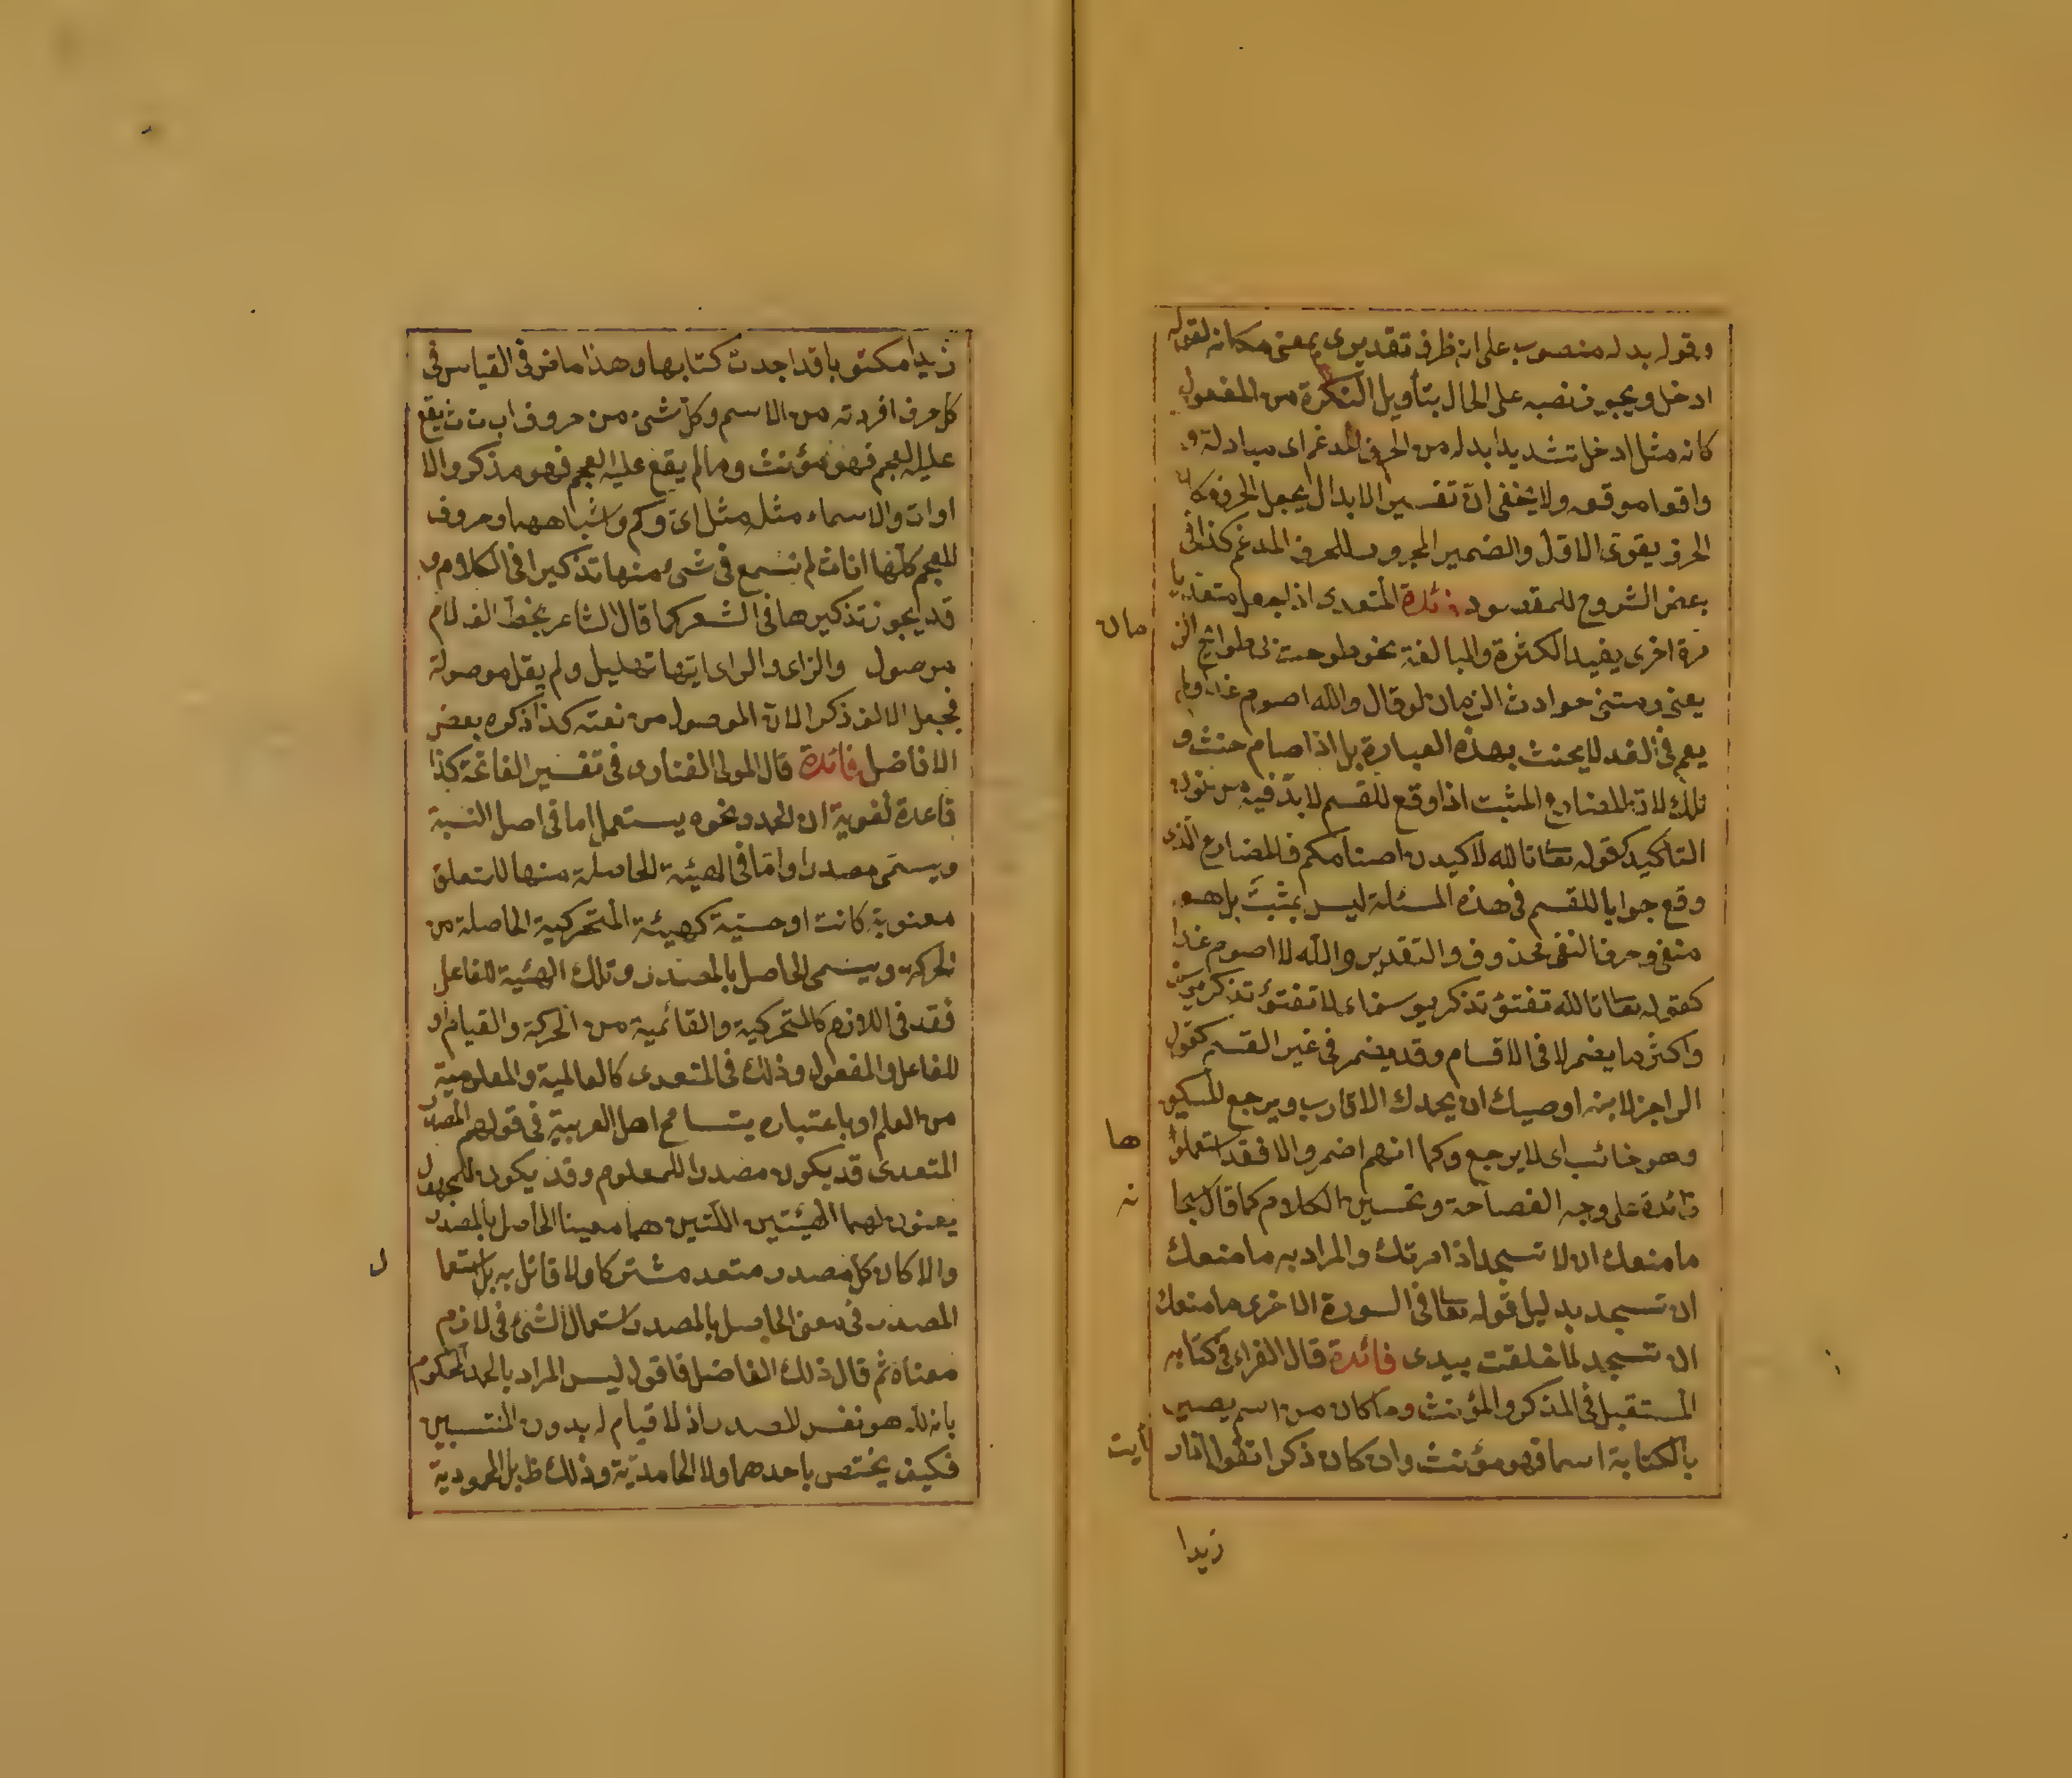 وقوله بدله منصوب على انه ظرف تقديرى بمعنى مكانه لقوله
ادخل ويجوز نصبه على الحال بتأويل النكرة من المفعول
كانه مثل ادخل تشديدا بدله من الحرف المدغم اى مبادلة و
واقعا موقعه ولا يخفى ان تفسير الابدال بجعل الحرف مكان
الحرف يقوى الاول والضمير المجرور للحرف المدغم كذا فى
بعض الشروح للمقصود فائدة المتعدى اذا جعل متعديا
مرة اخرى يفيد الكثرة والمبالغة نحو طوحت نى طوايح الز مان
يعنى ومتنى حوادث الزمان لو قال والله اصوم غدا ولم
يصم فى الغد لا يحنث بهذه العبارة بل اذا صام حنث و
ذلك لان المضارع المثبت اذا وقع للقسم لابد فيه من نون
التأكيد كقوله تعا تالله لاكيدن اصنامكم فالمضارع الذى
وقع جوابا للقسم فى هذه المسئلة ليس بمثبت بل هو
منفى وحرف النفى محذوف والتقدير والله لا اصوم غدا
كقوله تعا تالله تفتؤ تذكر يوسف اى لا تفتؤ تذكر يوسف
واكثر ما يضمر لا فى الاقسام وقد يضمر فى غير القسم كقول
الراجز لابنه اوصيك ان يحمدك الاقارب ويرجع المسكين
وهو خائب اى لا يرجع وكما انهم اضمروا لا فقد استعملوا ها
زائدة على وجه الفصاحة وتحسين الكلام كما قال سبحا نه
ما منعك ان لا تسجد اذ امرتك والمراد به ما منعك
ان تسجد بدليل قوله تعا فى السورة الاخرى ما منعك
ان تسجد لما خلقت بيدى فائدة قال الفراء فى كتابه
المستقبل فى المذكر والمؤنث وما كان من اسم يصير
بالكتابة اسما فهو مؤنث وان كان ذكرا تقول اذا ر أيت
زيدا
زيدا مكتوبا قد اجدت كتابها وهذا ماض فى القياس فى
كل حرف افردته من الاسم وكل شئ من حروف ا ب ت ث يقع
عليه العجم فهو مؤنث وما لم يقع عليه العجم فهو مذكر والا
اوات والاسماء مثله مثل اى وكم واشباهها وحروف
المعجم كلها اناث لم نسمع فى شئ منها تذكيرا فى الكلام و
قد يجوز تذكيرها فى الشعر كما قال الشاعر يخط الف لام
موصول والزاى والراى ايتها تهليل ولم يقل موصولة
فجعل الالف ذكرا لان الموصول من نعته كذا ذكره بعض
الافاضل فائدة قال المولى الفنارى فى تفسير الفاتحة كذا
قاعدة لغوية ان الحمد ونحوه يستعمل اما فى اصل النسبة
ويسمى مصدرا واما فى الهيئة الحاصلة منها للمتعلق
معنوية كانت او حسية كهيئة المتحركية الحاصلة من
الحركة ويسمى الحاصل بالمصدر وتلك الهيئة للفاعل
فقد فى اللازم كالمتحركية والقائمية من الحركة والقيام او
للفاعل والمفعول وذلك فى المتعدى كالعالمية والمعلومية
من العلم او باعتباره يتسامح اهل العربية فى قولهم المصدر
المتعدى قد يكون مصدرا للمعلوم وقد يكون للمجهول
يعنون بهما الهيئتين اللتين هما معينا الحاصل بالمصدر
والا كان كل مصدر متعد مشتركا ولا قائل به بل استعما ل
المصدر فى معنى الحاصل بالمصدر استعمال الشئ فى لازم
معناه ثم قال ذلك الفاضل فاقول ليس المراد بالحمد المحكوم
بانه لله هو نفس المصدر اذ لا قيام له بدون المنتسبين
فكيف يختص باحدهما ولا الحامدية وذلك ظ بل المحمودية